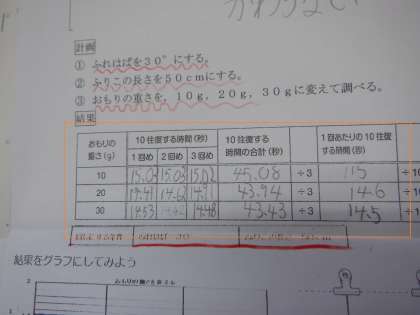 かわらない
計画
① ふれはばを30°にする。
② ふりこの長さを50cmにする。
③ おもりの重さを，10g，20g，30gに変えて調べる。
結果
おもりの重さ(g) 10往復する時間(秒) 10往復する時間の合計(秒) 1回あたりの10往復する時間(秒)
1回め 2回め 3回め
10 15.03 15.03 15.02 45.08 ÷3 15 ÷10
20 14.41 14.62 14.91 43.94 ÷3 14.6 ÷10
30 14.53 14.48 43.43 ÷3 14.5 ÷1
結果をグラフにしてみよう
おもりの重さ
2